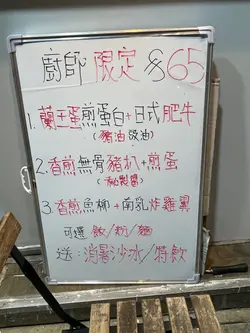 廚師限定 $65
1. 蘭王蛋煎蛋白+日式肥牛
(豬油豉油)
2. 香煎無骨豬扒+煎蛋
(秘製醬)
3. 香煎魚柳+南乳炸雞翼
可選 飯/粉/麵
送: 消暑沙水/特飲